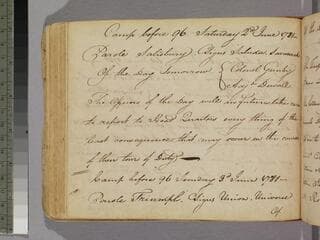 Camp before 96 Saturday 2d June 1781
Parole Salisbury, C. Signs Saluda. Savannah
Of the day Tomorrow { Colonel Gunby
Majr. Dowall
The Officers of the day will in future take care
to report to Head Quarters every thing of the
least consequence that may occur in the course
of their tours of Duty
Camp before 96 Sunday 3d June 1781
Parole Triumph. C Signs Union. Universe
Of